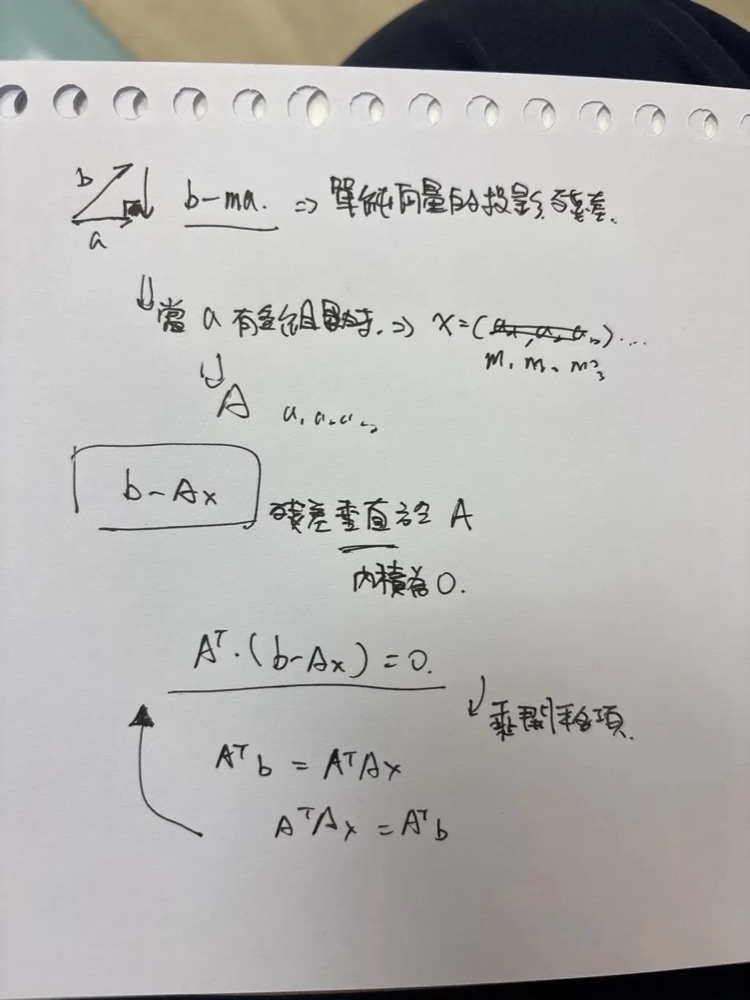 b b-ma. ⇒ 單純向量的投影殘差.
a
⇓ 當 a 有多組時. ⇒ x = ( a₁, a₂ aₙ ) ...
m₁ m₂ m₃
⇓
A a₁ a₂ a₃
b-Ax 殘差垂直於 A
內積為 0.
Aᵀ·(b-Ax) = 0.
↓ 乘開移項.
Aᵀb = AᵀAx
AᵀAx = Aᵀb